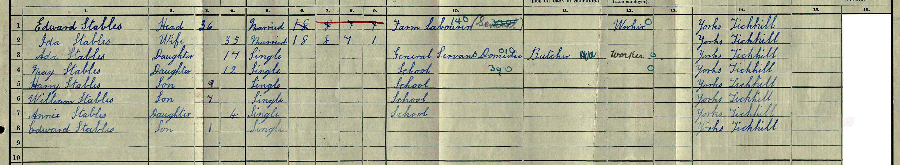 1 Edward Stables Head 36 Married 18 8 7 1 Farm Labourer 140 Worker 0 Yorks Tickhill
2 Ada Stables Wife 35 Married 18 8 7 1 Yorks Tickhill
3 Ada Stables Daughter 17 Single General Servant Domestic Butcher Worker 0 Yorks Tickhill
4 May Stables Daughter 12 Single School 390 0 Yorks Tickhill
5 Harry Stables Son 9 Single School Yorks Tickhill
6 William Stables Son 7 Single School Yorks Tickhill
7 Annie Stables Daughter 4 Single School Yorks Tickhill
8 Edward Stables Son 1 Single Yorks Tickhill
9
10